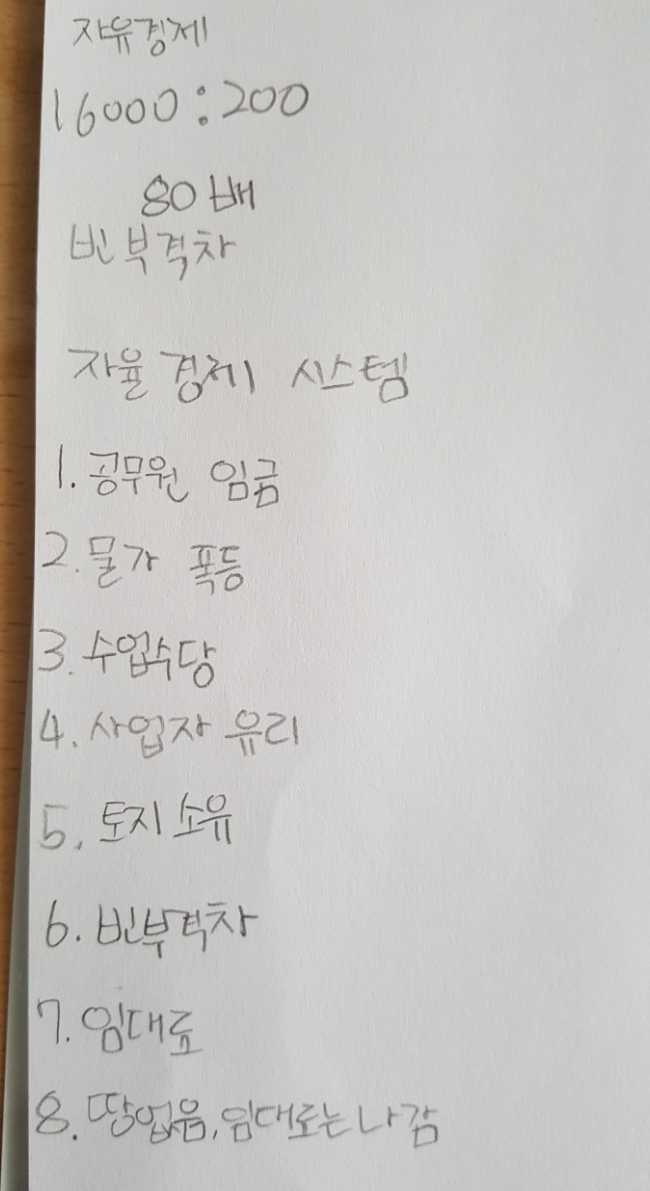 자유경제
16000:200
80배
빈부격차
자율 경제 시스템
1. 공무원 임금
2. 물가 폭등
3. 수업수당
4. 사업자 유리
5. 토지 소유
6. 빈부격차
7. 임대료
8. 땅없음, 임대로는 나감